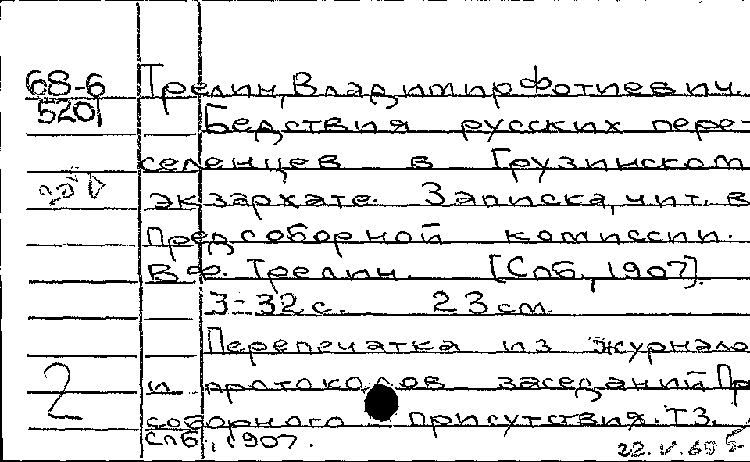 68-6
5201
Трелин, Владимир Фотиевич.
Бедствия русских пере-
селенцев в Грузинском
экзархате. Записка, чит. в
Предсоборной комиссии.
В.Ф. Трелин. [Спб., 1907].
3-32 с. 23 см.
Перепечатка из журнало
и протоколов заседаний Пр
соборного присутствия. Т3.
Спб., 1907.
2